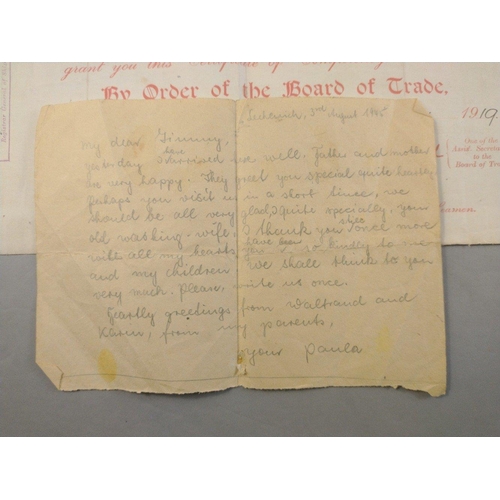 grant you this Certificate of Competency
By Order of the Board of Trade.
1919
Out of the
Board of Tra
3rd August 1945
My dear Timmy,
yesterday we well. Father and mother
are very happy. They greet you special quite heartly
perhaps you visit us in a short time, we
should be all very glad, quite specially, you
old washing-wife. I thank you once more
shes
with all my hearts, you so kindly to me
have been
and my children. We shall think to you
very much. Please, write us once.
Heartly greetings from Waltraud and
Karin, from my parents,
your Paula